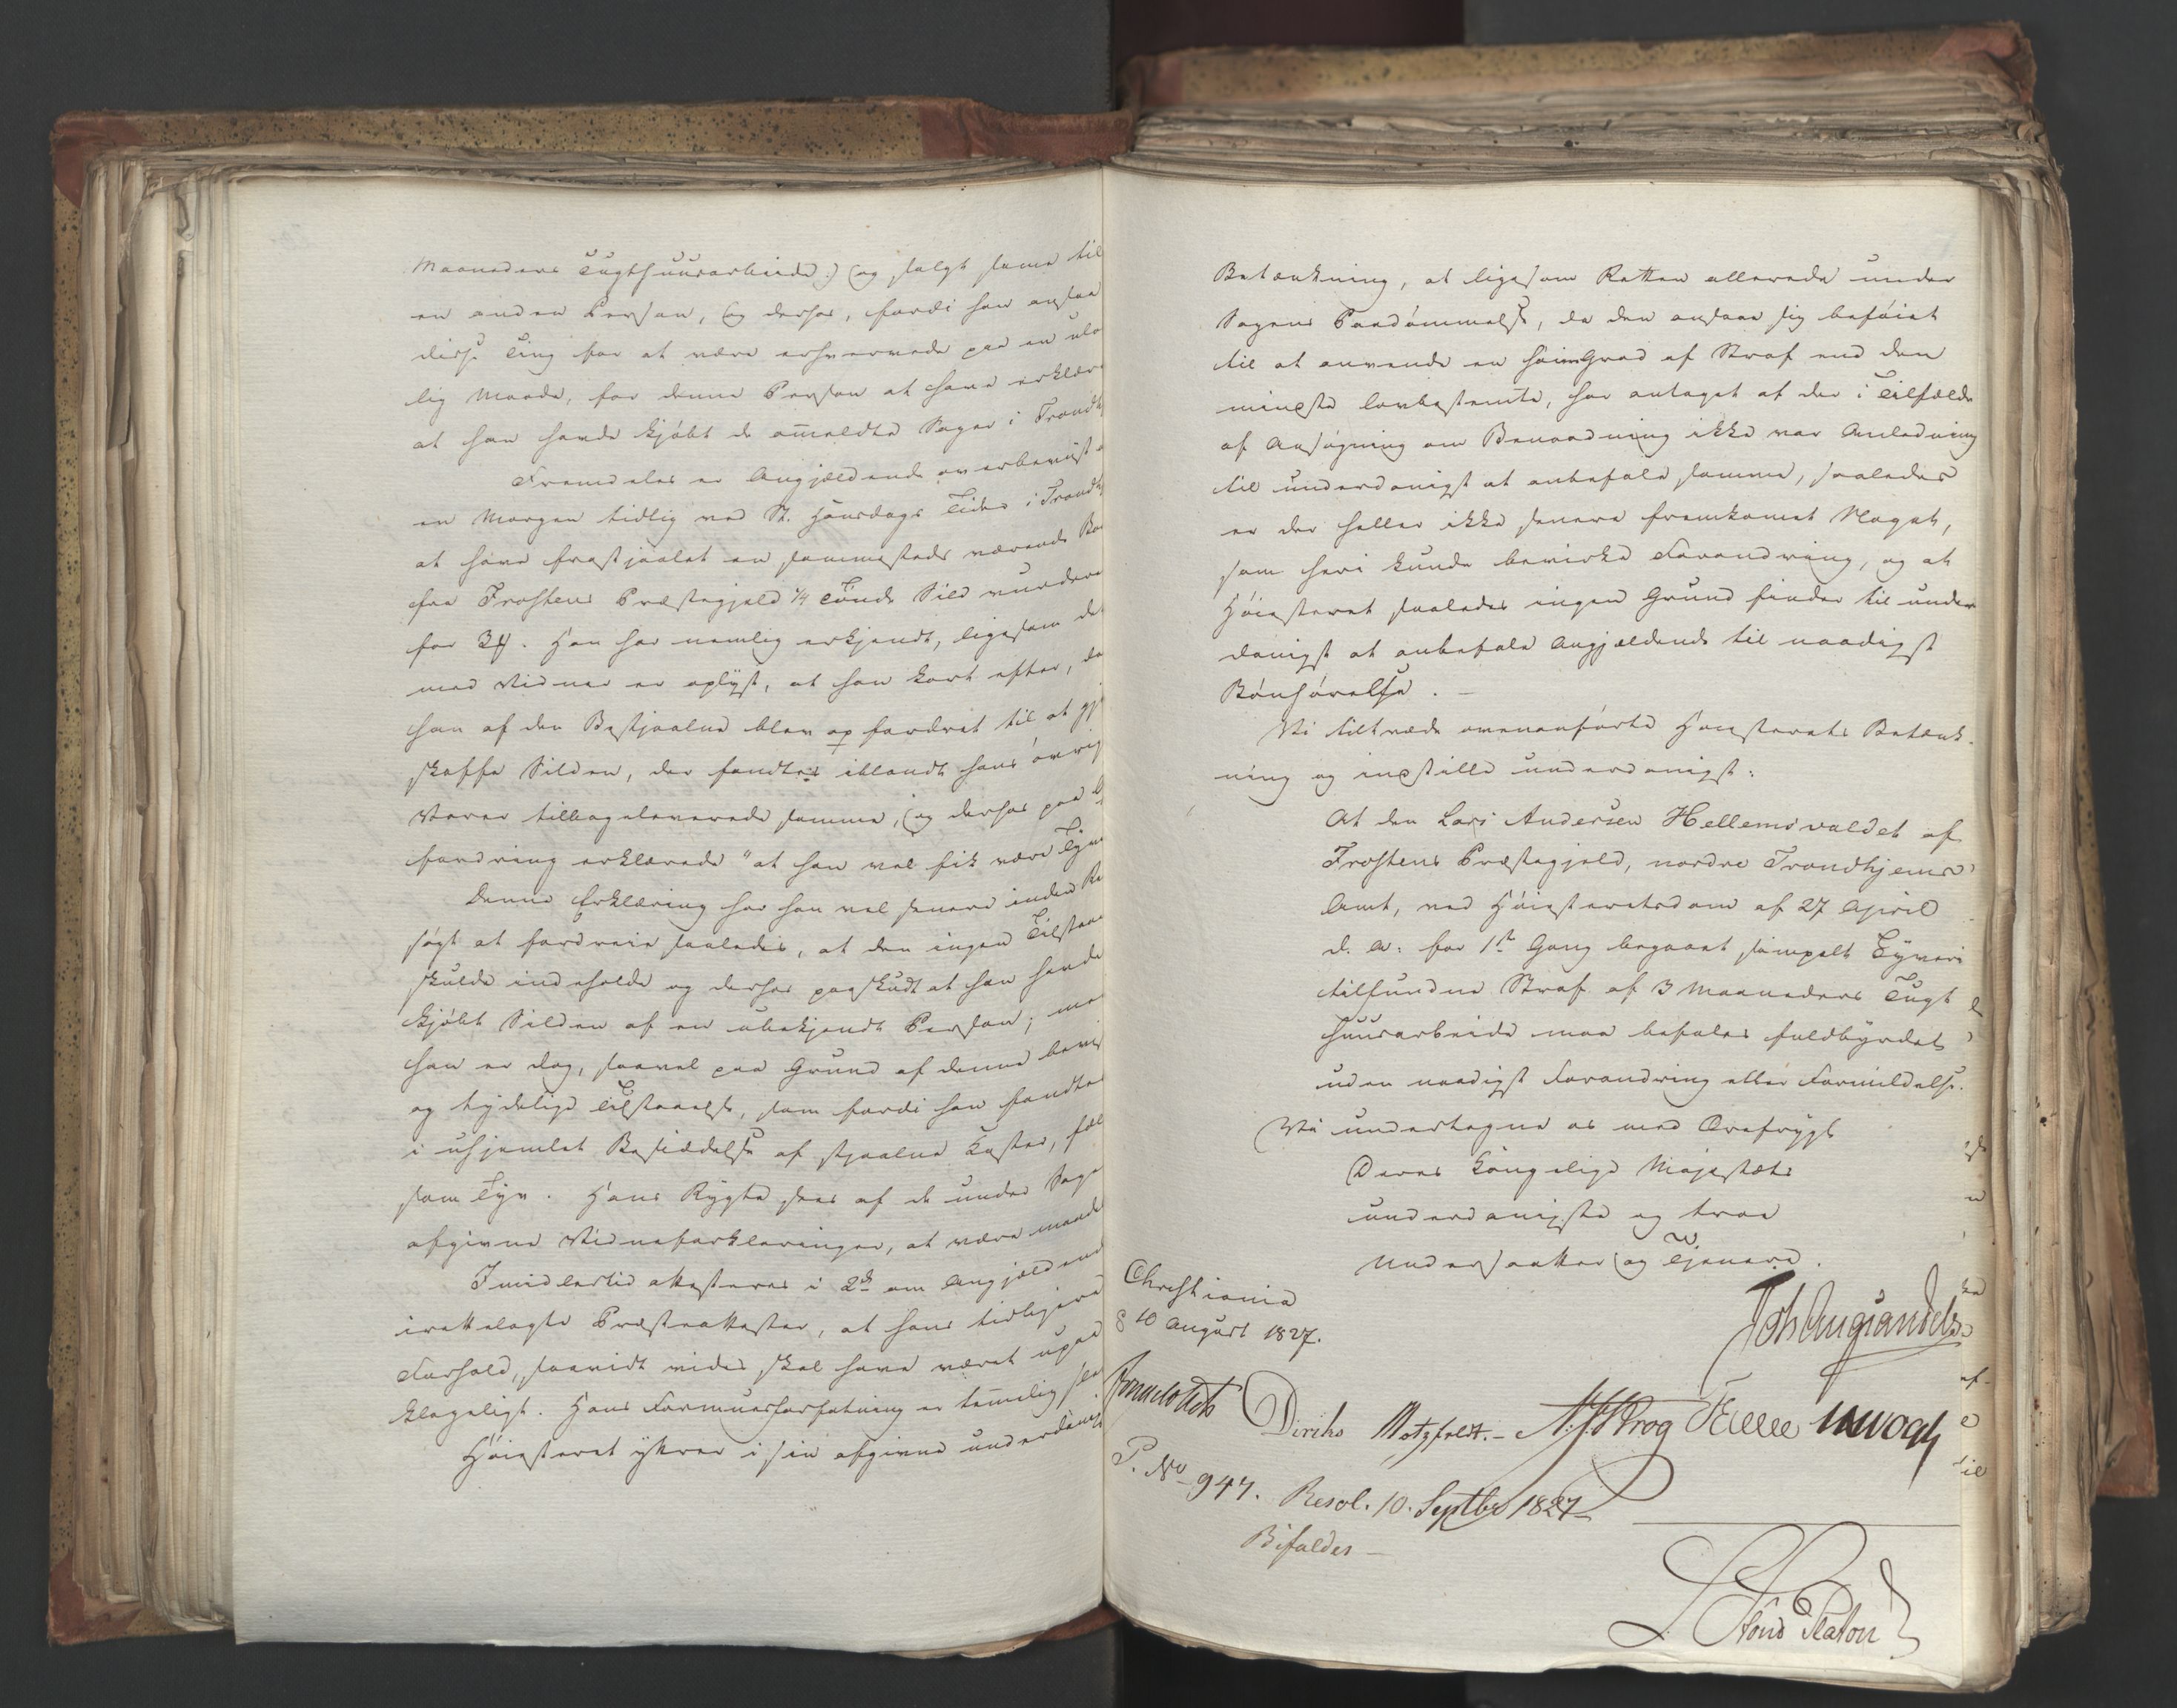 Maaneders Tugthuusarbeide.) og solgt samme til
en anden Person, og derhos, fordi han ansaae
disse Ting for at være erhvervede paa en ulov
lig Maade, for denne Person at have erklær
at han havde kjøbt de ommeldte Sager i Trondh
Fremdeles er Angjældende overbeviist
en Morgen tidlig ved St. Hansdags Tider i Trondh
at have frastjaalet en sammesteds værende
fra Frostens Præstegjeld 1/4 Tønde Sild vurderet
for . Han har nemlig erkjendt, ligesom det
med Vidner er oplyst, at han kort efter, da
han af den Bestjaalne blev opfordret til at
skaffe Silden, der fandtes iblandt hans øvrig
Varer tilbageleverede samme, og derhos paa
fordring erklærede "at han vel fik være Tyv
Denne Erklæring har han vel senere inden Re
søgt at fordreie saaledes, at den ingen Tilstaae
skulde indeholde og derhos paaskudt at han havde
kjøbt Silden af en ubekjendt Person; me
han er dog, saavel paa Grund af denne beviis
og tydelige Tilstaaelse, som fordi han fandtes
i uhjemlet Besiddelse af stjaalne Koster, fæl
som Tyv. Hans Rygte sees af de under Sage
afgivne Vidneforklaringer, at være maade
Imidlertid attesteres i 2de om Angjældende
irettelagte Præsteattester, at hans tidligere
Forhold, saavidt vides skal have været upaa
klageligt. Hans Formuesforfatning er temmelig
Høiesteret ytrer i sin afgivne underdanigste
Betænkning, at ligesom Retten allerede under
Sagens Paadømmelse, da den ansaae sig beføiet
til at anvende en høiere Grad af Straf end den
mindste lovbestemte, har antaget at der i Tilfælde
af Ansøgning om Benaadning ikke var Anledning
til underdanigst at anbefale samme, saaledes
er der heller ikke senere fremkomet Noget,
som heri kunde bevirke Forandring, og at
Høiesteret saaledes ingen Grund finder til under
danigst at anbefale Angjældende til naadigst
Bønhørelse. –
Vi tiltræde ovenanførte Høiesterets Betænk-
ning og indstille underdanigst:
At den Lars Andersen Hellemsvaldet af
Frostens Præstegjeld, nordre Trondhjems
Amt, ved Høiesteretsdom af 27 April
d. A. for 1ste Gang begaaet simpelt Tyveri
tilfundne Straf af 3 Maaneders Tugt
huusarbeide maa befales fuldbyrdet
uden naadigst Forandring eller Formildelse.
Vi undertegne os med Ærefrygt
Deres Kongelige Majestæts
underdanigste og troe
Undersaatter og Tjenere.
Christiania
10 August 1827.
Joh Aug Sandels
Diriks Motzfeldt. – Krog
P. No 947. Resol. 10. Septbr 1827
Bifaldes –